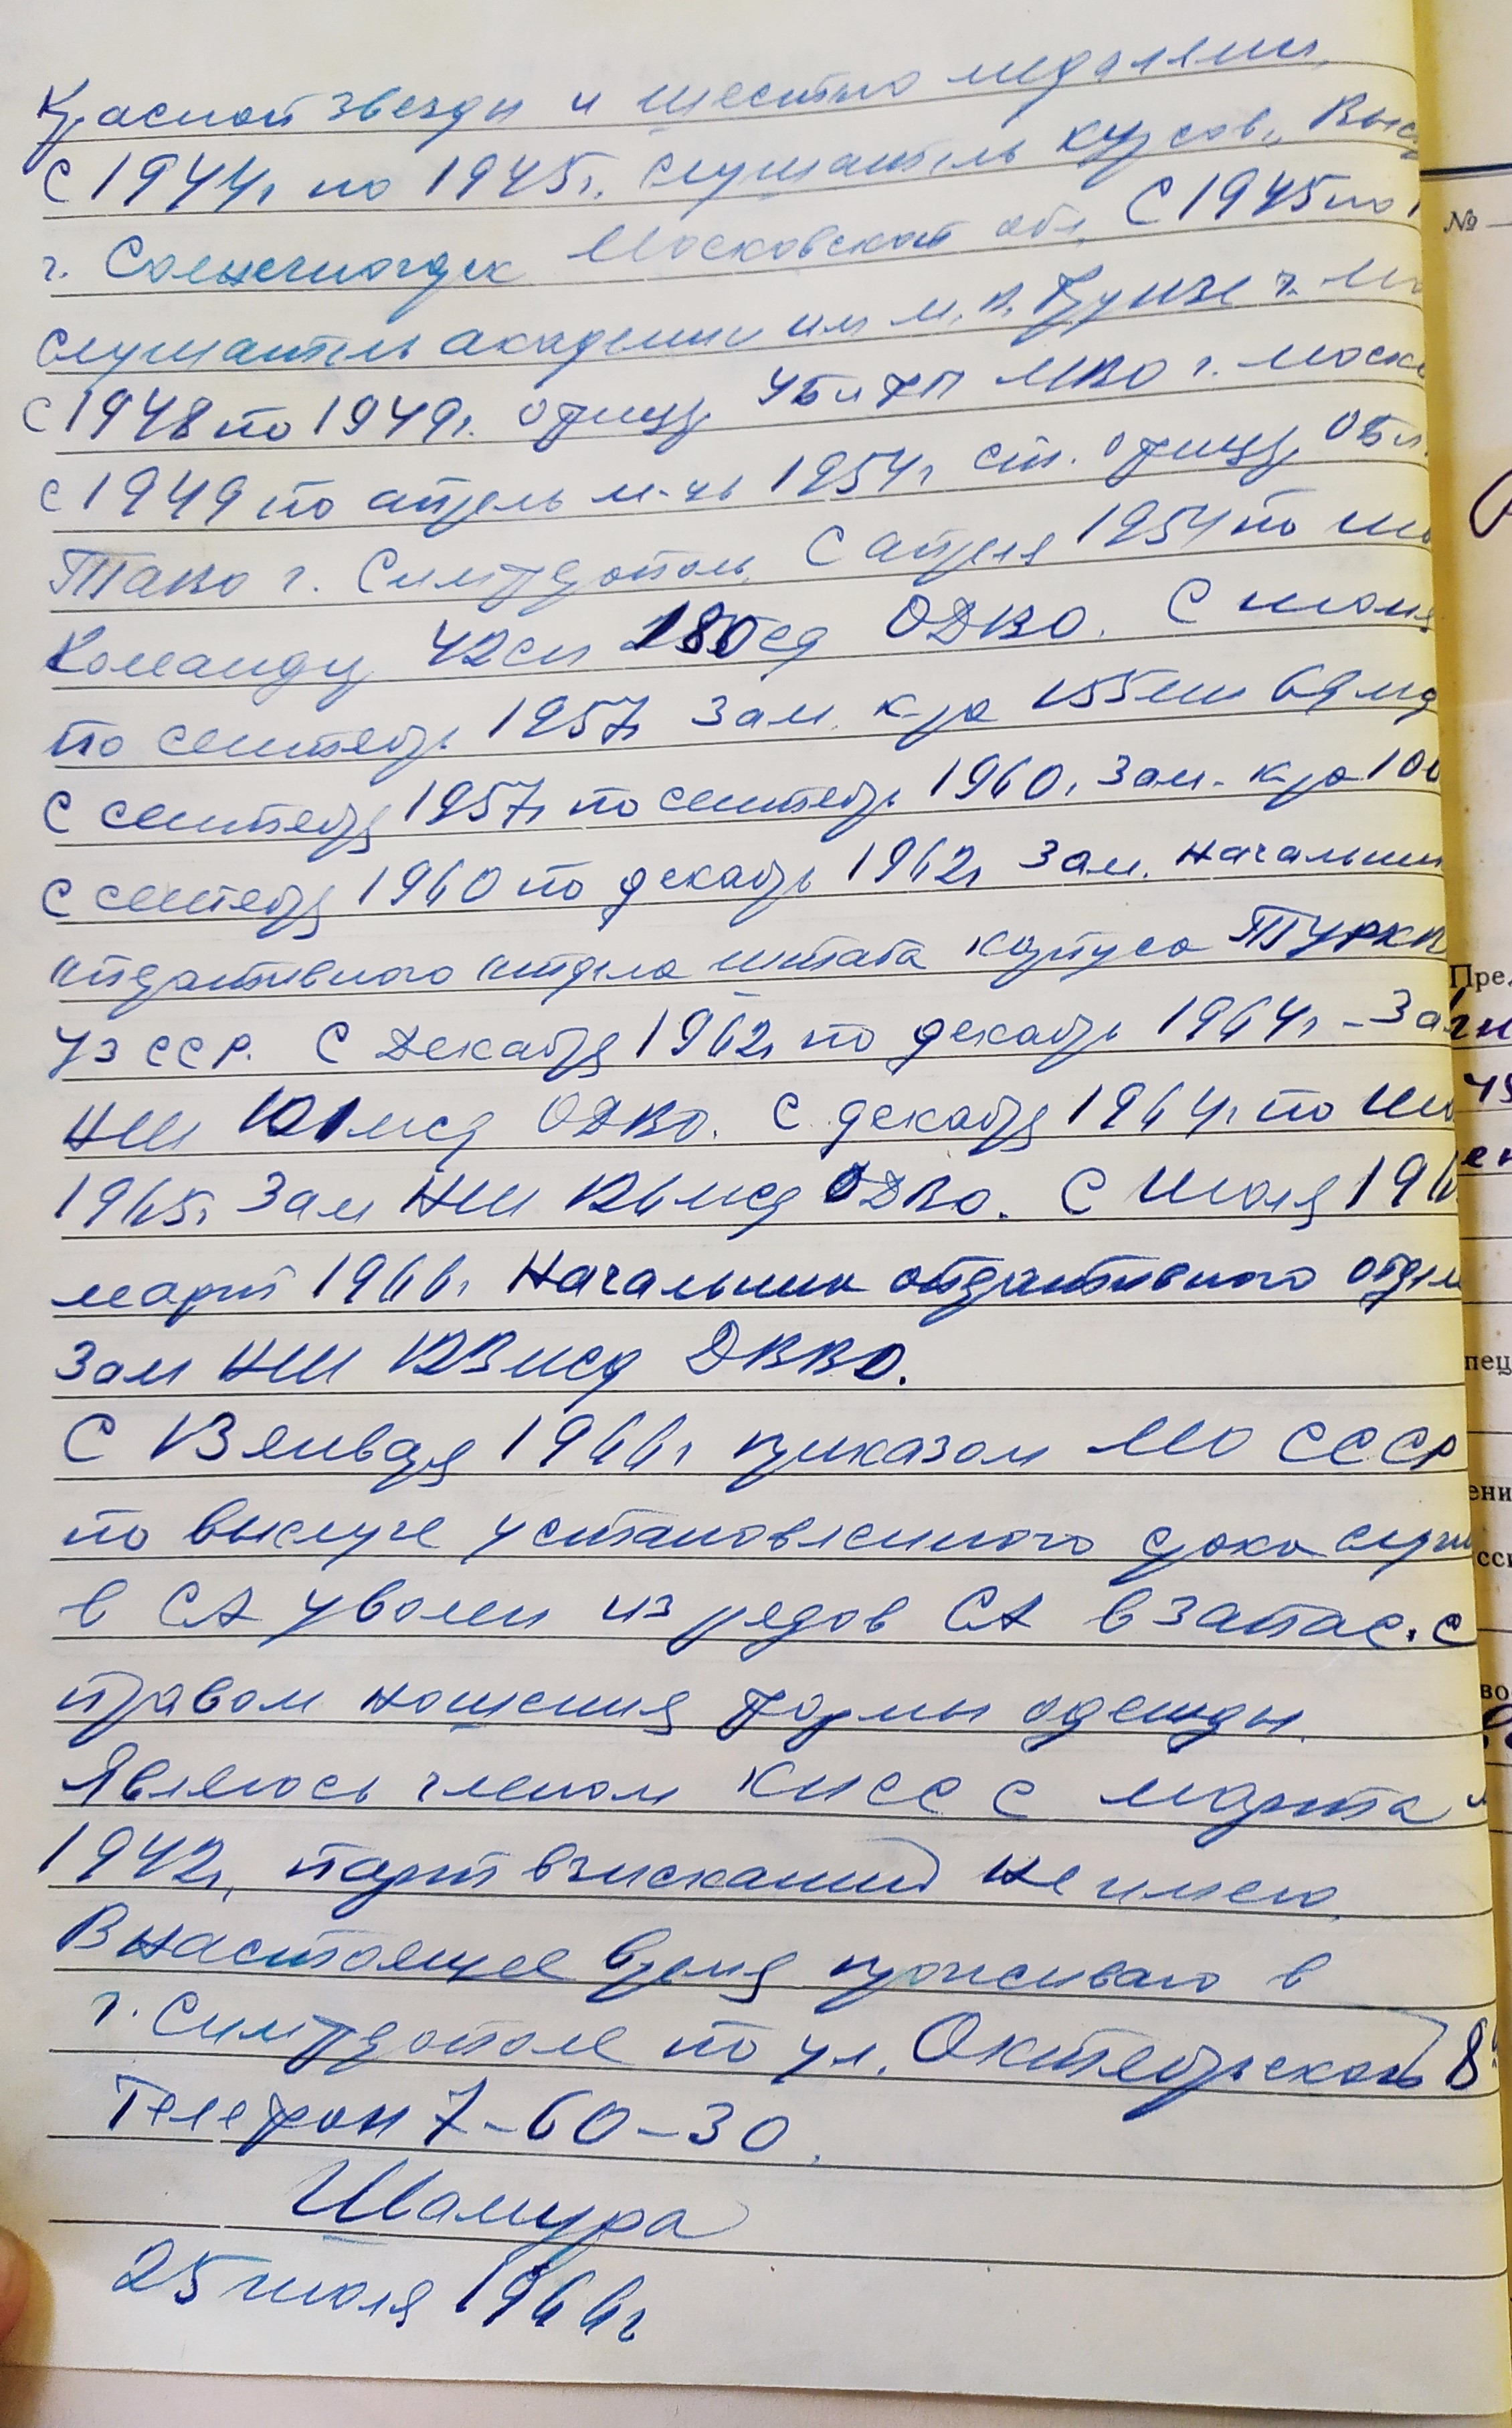 Красной звезды и шестью медалями,
С 1944г. по 1945г. слушатель курсов „Выс
г. Солнечногорск Московской обл. С 1945 по 1
слушатель академии им М.В. Фрунзе г. Мо
С 1948 по 1949г. офицер УБП МВО г. Моск
с 1949 по апрель м-ць 1954г ст. офицер ОБП
ТавВО г. Симферополь. С апреля 1954 по ию
Командир 42сп 180сд ОДВО. С июня
по сентябрь 1957г Зам. к-ра 155мп 69мд
С сентября 1957г по сентябрь 1960г. Зам. к-ра 100
С сентября 1960 по декабрь 1962г Зам. Начальни
оперативного отдела штаба корпуса ТУРКВ
Уз ССР. С Декабря 1962г по декабрь 1964г – Зам
НШ 121мсд ОДВО. С декабря 1964г. по ию
1965г Зам НШ 126мсд ОДВО. С Июля 196
март 1966г. Начальник оперативного отдел
Зам НШ 123мсд ДВВО.
С 13 января 1966г приказом МО СССР
по выслуге установленного срока служ
в СА уволен из рядов СА в запас. с
правом ношения формы одежды.
Являюсь членом КПСС с марта м
1942г, партвзысканий не имею.
В настоящее время проживаю в
г. Симферополе по ул. Октябрьской 8
Телефон 7-60-30.
Шамура
25 июля 1966г
№
Пре
пец
ени
сси
во